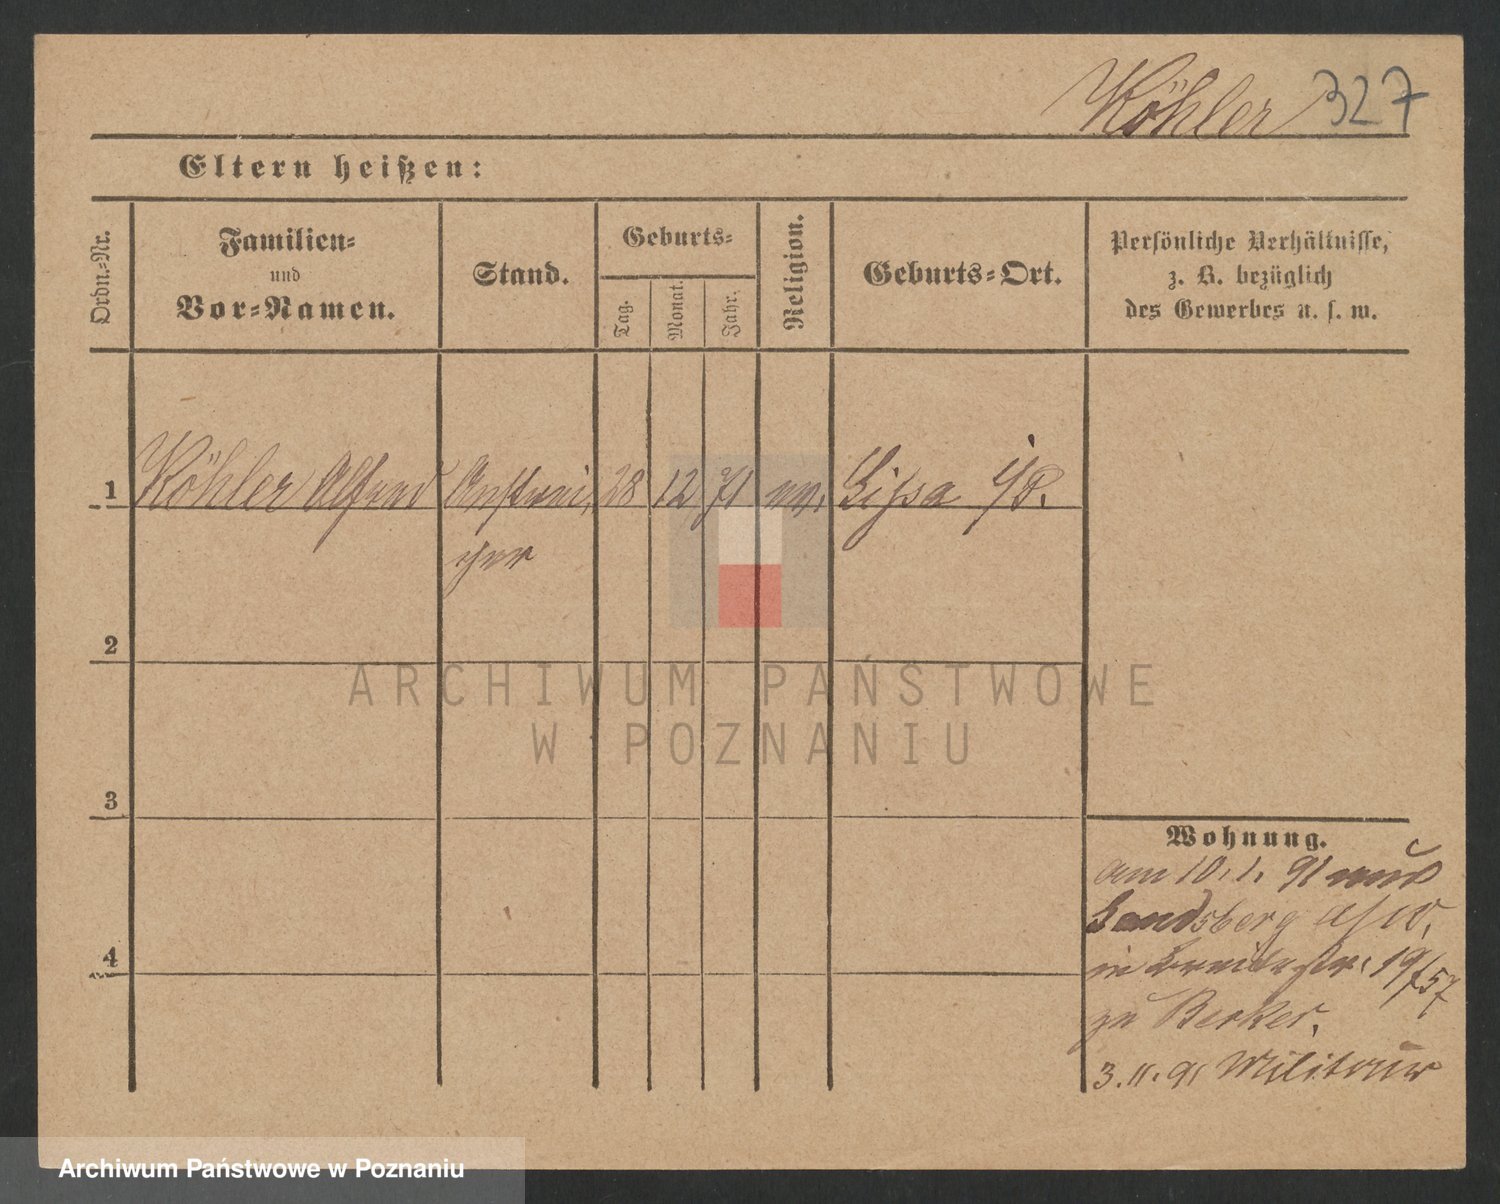 Köhler 327
Eltern heißen:
Ordn.-Nr.
Familien-
und
Vor-Namen.
Stand.
Geburts-
Tag.
Monat.
Jahr.
Religion.
Geburts-Ort.
Persönliche Verhältnisse,
z. B. bezüglich
des Gewerbes u. s. w.
1 Köhler Alfred Anstrei- 28 12 71 ev. Lissa i/P.
cher
2
3
4
Wohnung.
am 10.1.91 aus
Landsberg a/W.
in Breitestr. 19/57
zu Becker.
3.11.91 Militair
ARCHIWUM PAŃSTWOWE
W POZNANIU
Archiwum Państwowe w Poznaniu